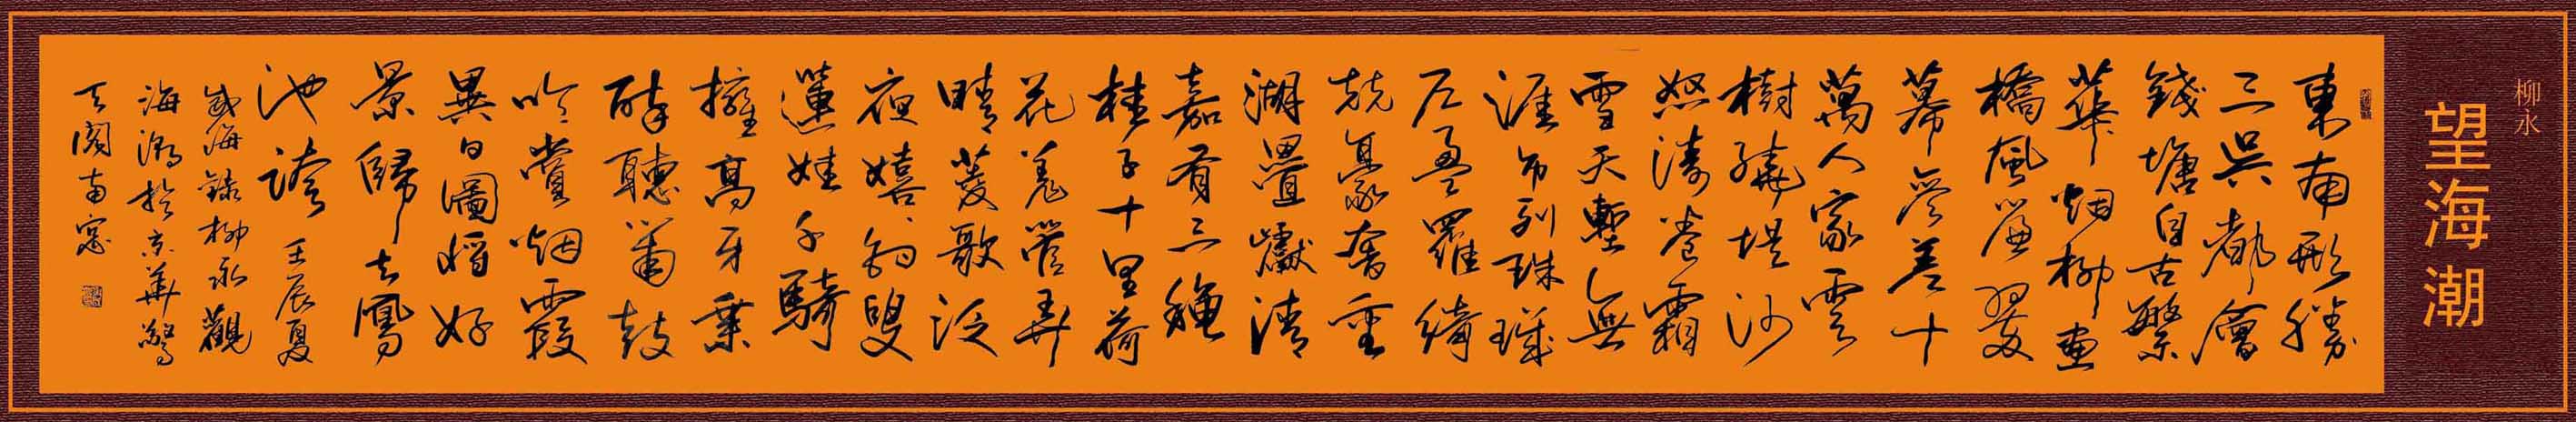 柳永
望海潮
東南形勝
三吳都會
錢塘自古繁
華烟柳畫
橋風簾翠
幕參差十
萬人家雲
樹繞堤沙
怒濤卷霜
雪天塹無
涯市列珠璣
戶盈羅綺
競豪奢重
湖疊巘清
嘉有三穐
桂子十里荷
花羌管弄
晴菱歌泛
夜嬉嬉釣叟
蓮娃千騎
擁高牙乘
醉聽簫鼓
吟賞烟霞
異日圖將好
景歸去鳳
池誇 壬辰夏
海錄柳永觀
海潮於京華
天閣南窓